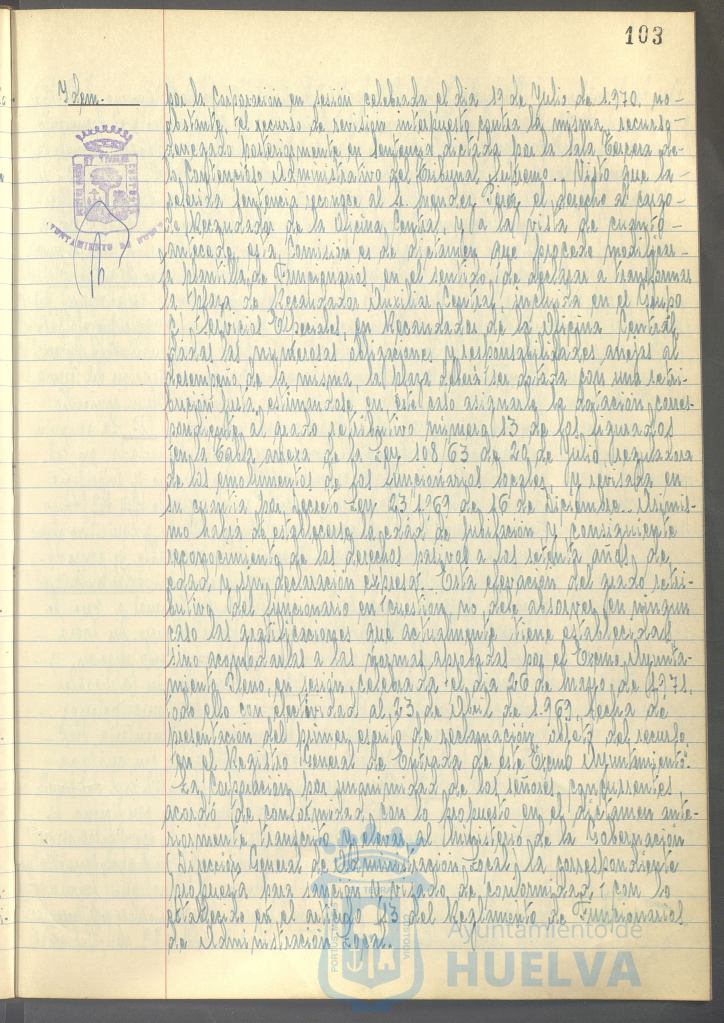 103
Idem.
por la Corporación en sesión celebrada el día 19 de Julio de 1.970, no-
obstante, el recurso de revisión interpuesto contra la misma, recurso-
denegado posteriormente en sentencia dictada por la Sala Tercera de-
lo Contencioso Administrativo del Tribunal Supremo.. Visto que la-
referida sentencia reconoce al Sr. Perez el derecho al cargo-
de Recaudador de la Oficina Central, y a la vista de cuanto-
antecede, esta Comisión es de dictamen que procede modificar-
la plantilla de Funcionarios en el sentido de declarar a transformar
la Plaza de Recaudador Auxiliar Central, incluida en el Grupo
C) Servicios Especiales, en Recaudador de la Oficina Central,
dadas las numerosas obligaciones y responsabilidades anejas al
desempeño de la misma, la plaza deberá ser dotada con una retri-
bución justa, estimandose en este caso asignarle la dotación corres-
pondiente al grado retributivo número 13 de los figurados
en la tabla anexa de la Ley 108/63 de 20 de Julio reguladora
de los emolumentos de los funcionarios locales, y revisada en
su cuantía por Decreto Ley 23/1.969 de 16 de Diciembre.. Asimis-
mo habrá de establecerse la edad de jubilación y consiguiente
reconocimiento de los derechos pasivos a los setenta años de
edad, y sin declaración expresa. Esta elevación del grado retri-
butivo del funcionario en cuestión, no debe absorver en ningun
caso las gratificaciones que actualmente tiene establecidas
sino acomodarlas a las normas aprobadas por el Excmo. Ayunta-
miento Pleno, en sesión celebrada el día 26 de mayo de 1.971,
todo ello con efectividad al 23 de Abril de 1.969 fecha de
presentación del primer escrito de reclamación objeto del recurso
en el Registro General de Entrada de este Excmo Ayuntamiento".
La Corporación por unanimidad de los señores concurrentes,
acordó de conformidad con lo propuesto en el dictamen ante-
riormente transcrito y elevar al Ministerio de la Gobernación
(Dirección General de Administración Local) la correspondiente
propuesta para sanción y visado de conformidad con lo
establecido en el artículo 13 del Reglamento de Funcionarios
de Administración Local.
AYUNTAMIENTO DE HUELVA
Ayuntamiento de
HUELVA